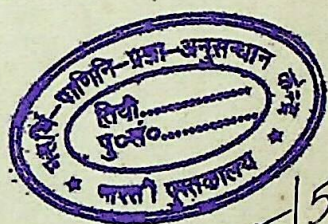 महर्षि-पाणिनि-प्रज्ञा-अनुसन्धान
तिथी..................
पु०स०..................
भारती पुस्तकालय